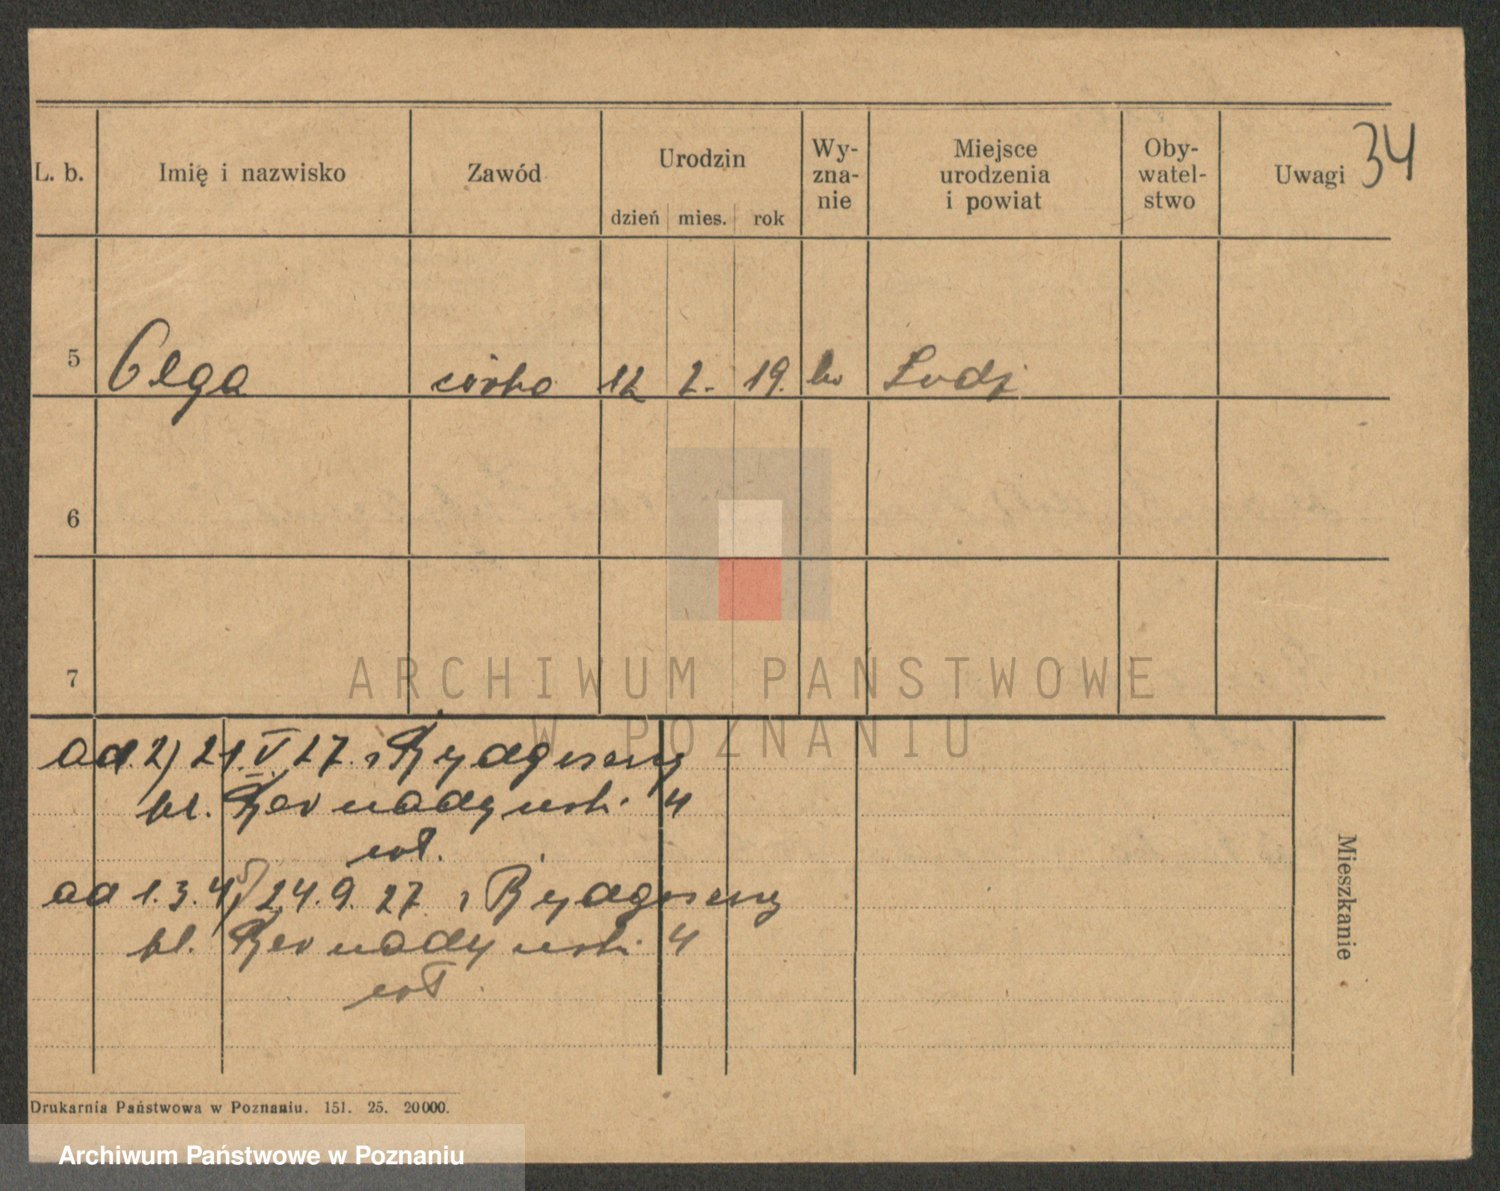 34
L. b. Imię i nazwisko Zawód Urodzin Wy-zna-nie Miejsce urodzenia i powiat Oby-watel-stwo Uwagi
dzień mies. rok
5 Olga córka 12 2. 19. Lodz
6
7
ARCHIWUM PAŃSTWOWE
W POZNANIU
ad. 2) 21. V. 27. Bydgoszcz
pl. Bernadyński 4
ad 1.3.4,5) 24.9.27 Bydgoszcz
pl. Bernadyński 4
Mieszkanie
Drukarnia Państwowa w Poznaniu. 151. 25. 20000.
Archiwum Państwowe w Poznaniu